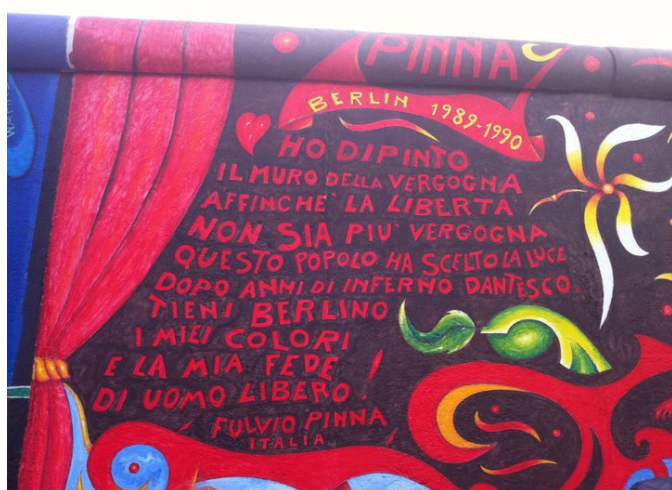 PINNA
BERLIN 1989-1990
HO DIPINTO
IL MURO DELLA VERGOGNA
AFFINCHE' LA LIBERTA'
NON SIA PIU' VERGOGNA
QUESTO POPOLO HA SCELTO LA LUCE
DOPO ANNI DI INFERNO DANTESCO.
TIENI BERLINO
I MIEI COLORI
E LA MIA FEDE
DI UOMO LIBERO!
FULVIO PINNA
ITALIA